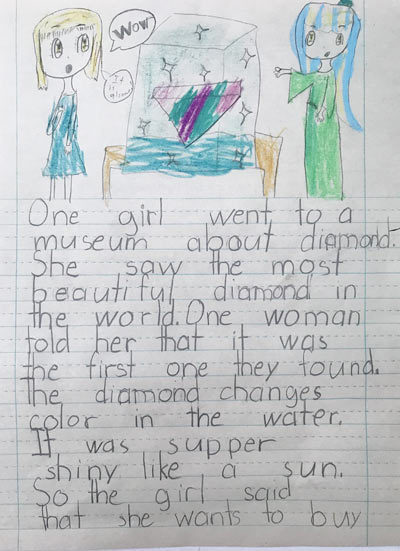 Wow
It
is
One girl went to a
museum about diamond.
She saw the most
beautiful diamond in
the world. One woman
told her that it was
the first one they found.
the diamond changes
color in the water.
It was supper
shiny like a sun.
So the girl said
that she wants to buy